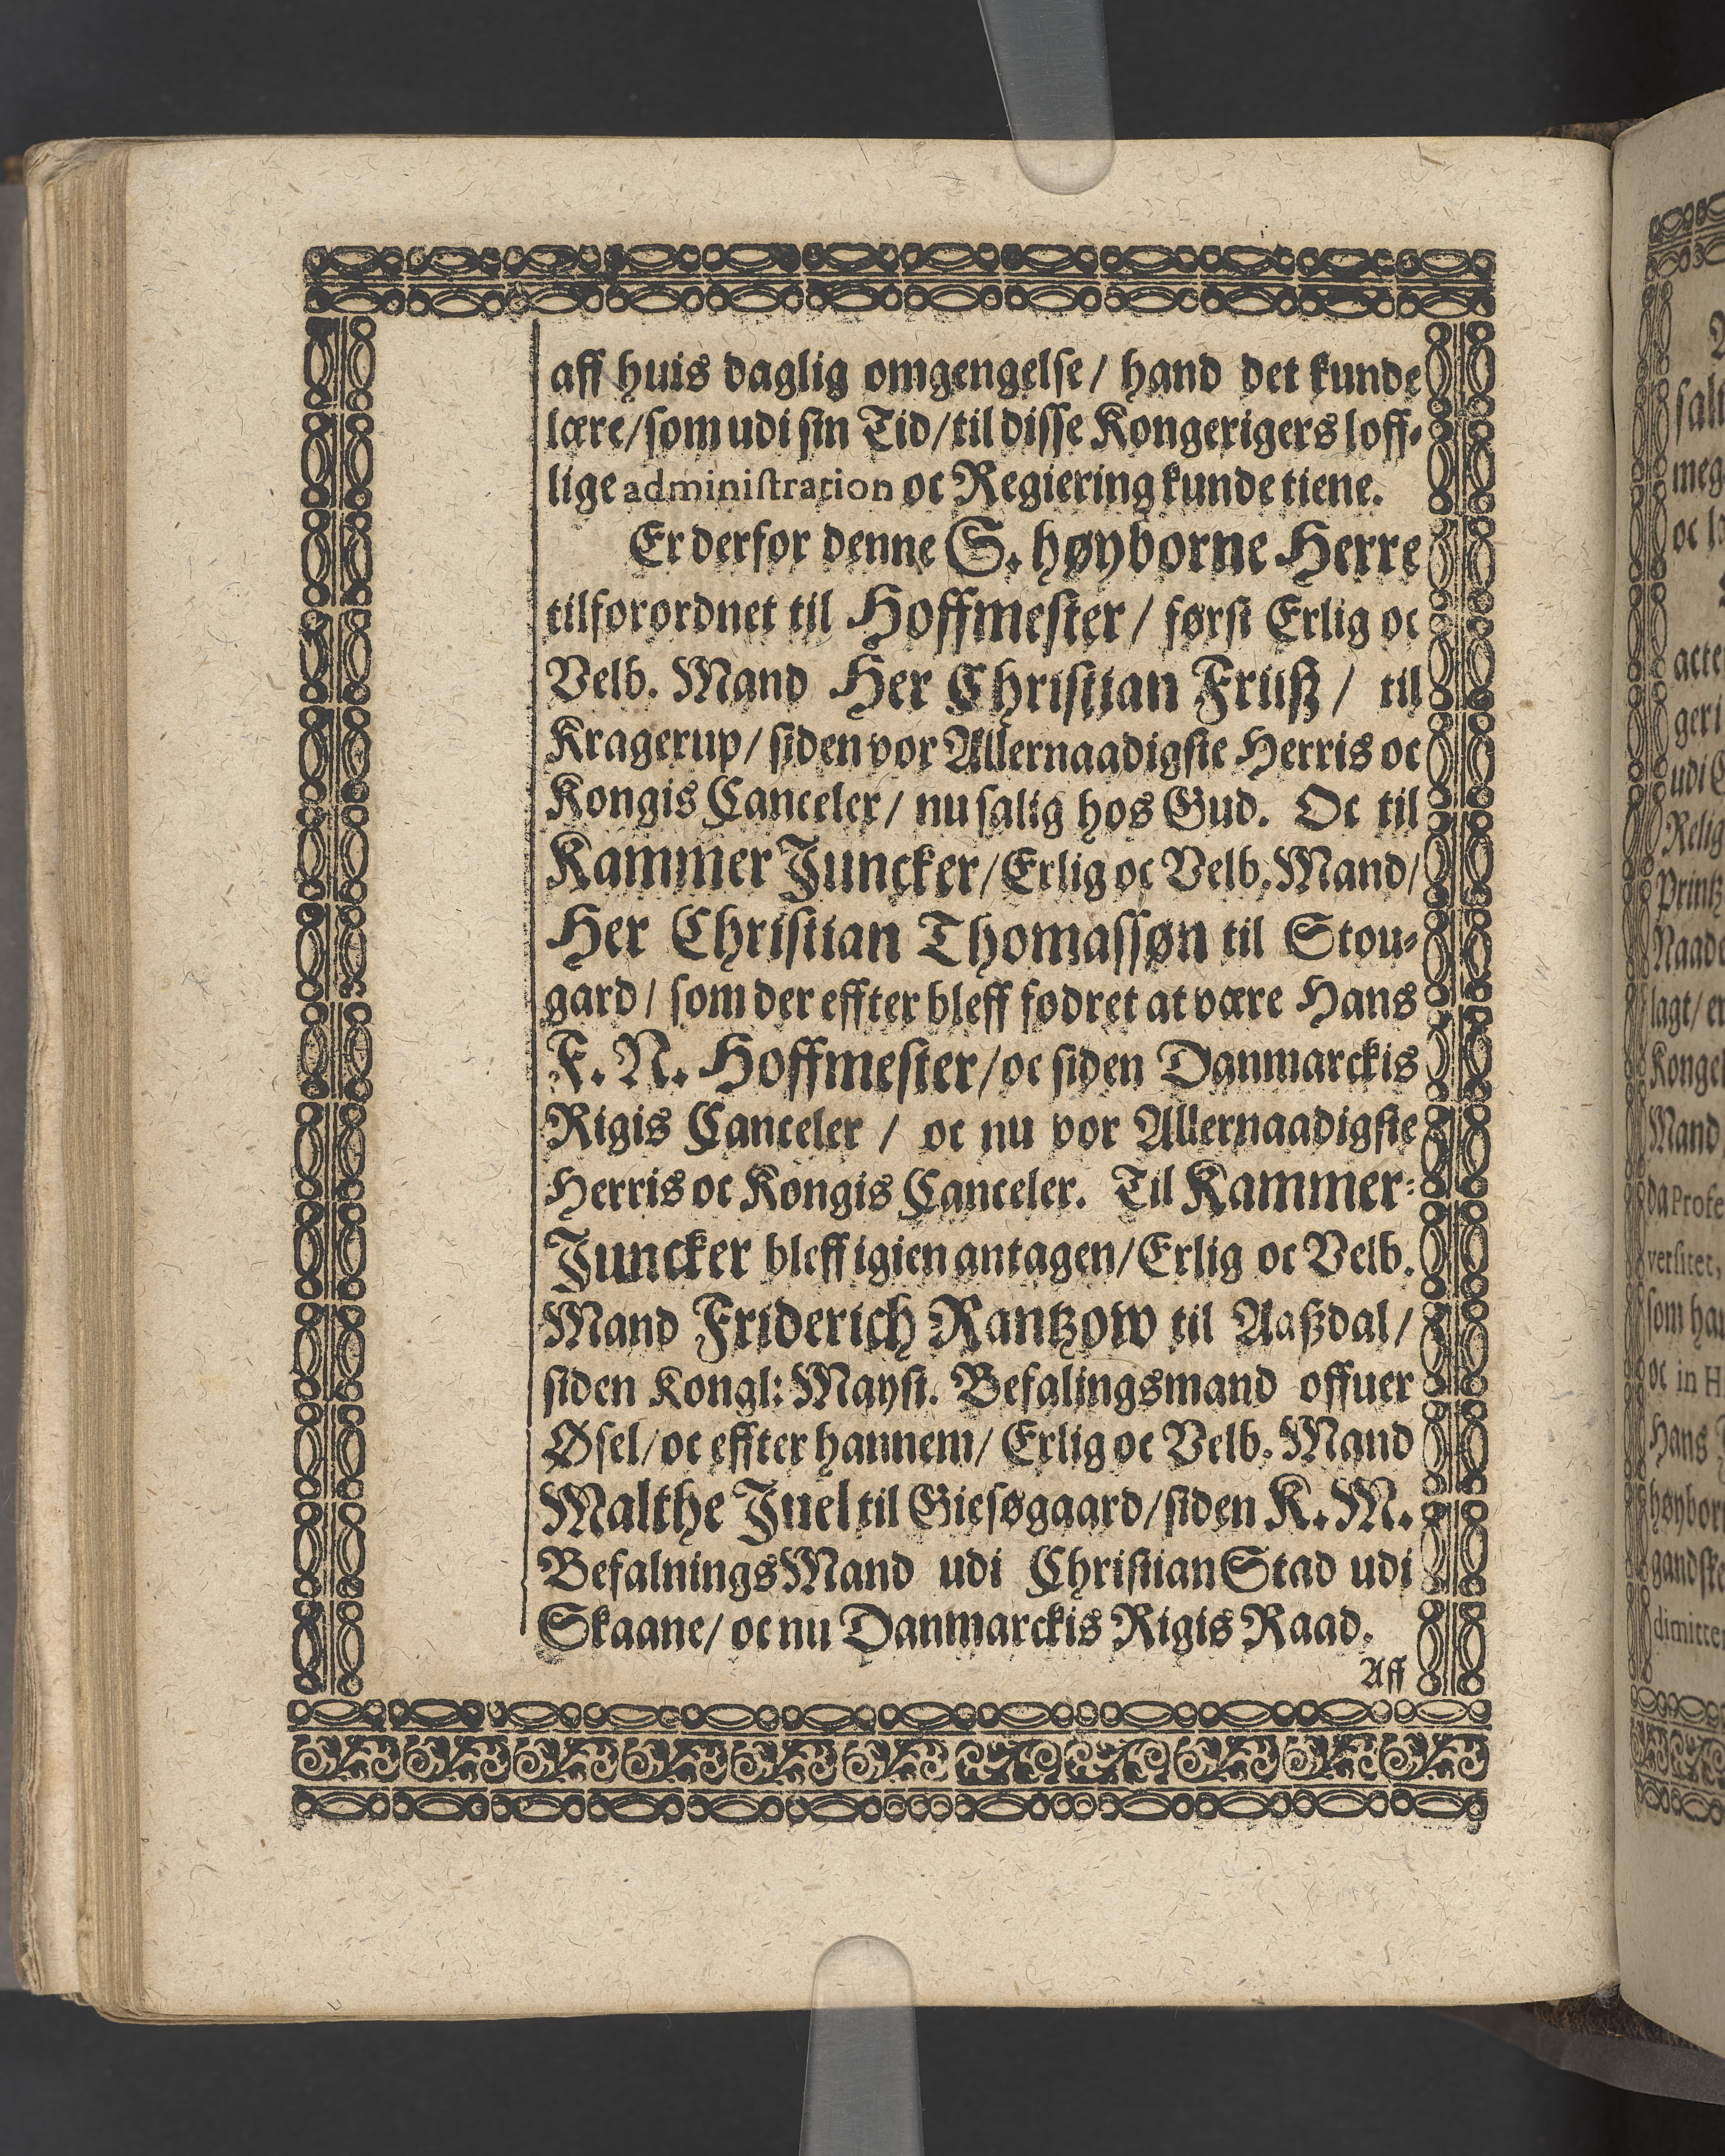 aff huis daglig omgengelse / hand det kunde
lære / som udi sin Tid / til disse Kongerigers loff-
lige administration oc Regiering kunde tiene.
Er derfor denne S. høyborne Herre
tilforordnet til Hoffmester / først Erlig oc
Velb. Mand Her Christian Friiß / til
Kragerup / siden vor Allernaadigste Herris oc
Kongis Canceler / nu salig hos Gud. Oc til
Kammer Juncker / Erlig oc Velb. Mand /
Her Christian Thomassøn til Stou-
gard / som der effter bleff fodret at være Hans
F. N. Hoffmester / oc siden Danmarckis
Rigis Canceler / oc nu vor Allernaadigste
Herris oc Kongis Canceler. Til Kammer-
Juncker bleff igien antagen / Erlig oc Velb.
Mand Friderich Rantzow til Aaßdal /
siden Kongl: Mayst. Befalingsmand offuer
Øsel / oc effter hannem / Erlig oc Velb. Mand
Malthe Juel til Giesøgaard / siden K. M.
Befalnings Mand udi Christian Stad udi
Skaane / oc nu Danmarckis Rigis Raad.
Aff